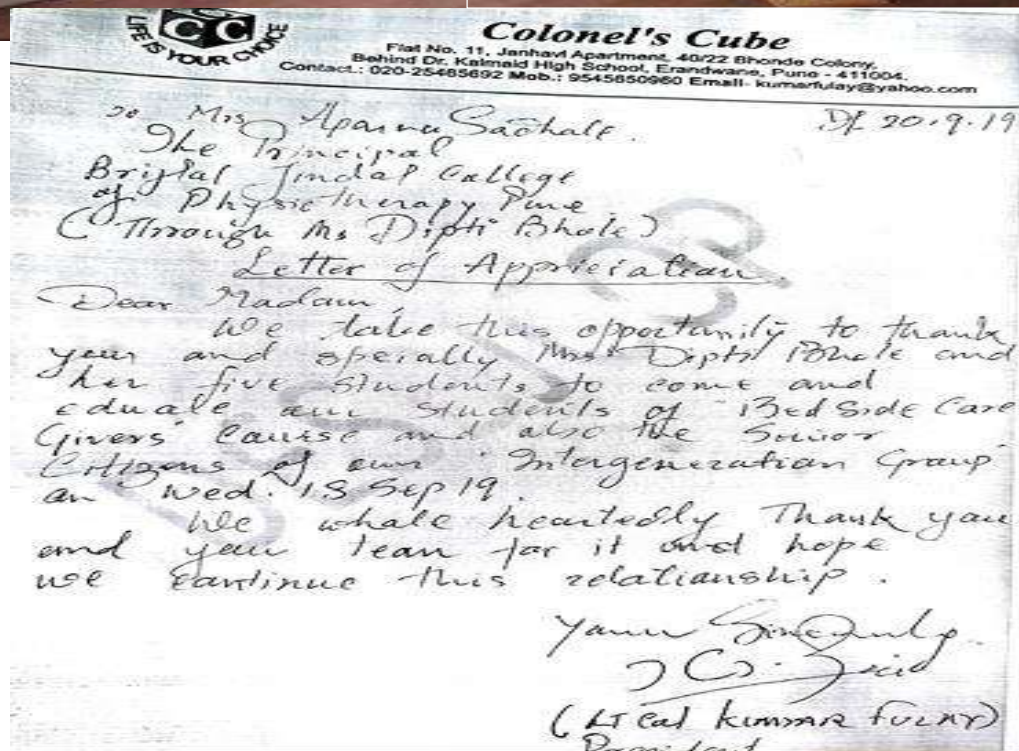 LIFE IS YOUR CHOICE
CC
Colonel's Cube
Flat No. 11, Janhavi Apartment, 40/22 Bhonde Colony,
Behind Dr. Kalmaid High School, Erandwane, Pune - 411004.
Contact.: 020-25465692 Mob.: 9545850960 Email- kumarfulay@yahoo.com
To Mrs Aparna Sadhale. Dt 20.9.19
The Principal
Brijlal Jindal College
of Physiotherapy Pune
(Through Ms Dipti Bhole)
Letter of Appriciation
Dear Madam,
We take this opportunity to thank
your and specially Mrs Dipti Bhole and
her five students to come and
eduate our students of Bed Side Care
Givers' Course and also the Senior
Citizens of our 'Intergeneration Group'
on Wed. 18 Sep 19.
We whole heartedly Thank you
and your team for it and hope
we continue this relationship.
Yours Sincerely
(Lt Col Kumar Fulay)
President